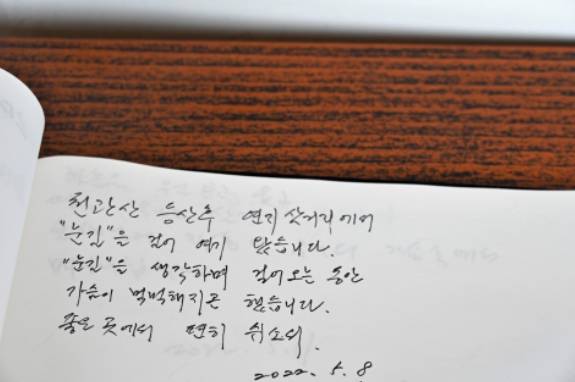 천관산 등산후 연지 삿거리에서
"눈길"을 걸어 여기 왔습니다.
"눈길"을 생각하며 걸어오는 동안
가슴이 먹먹해지곤 했습니다.
좋은 곳에서 편히 쉬소서.
2022. 5. 8